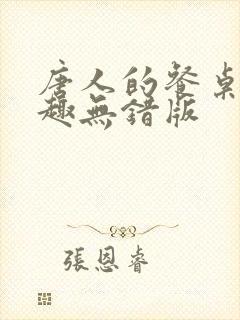 唐人的餐桌
趣無錯版
張恩睿